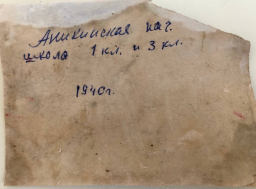 Аникинская нач.
школа 1 кл. и 3 кл.
1940г.